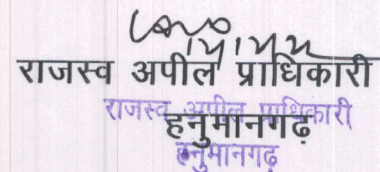 राजस्व अपील प्राधिकारी
राजस्व अपील प्राधिकारी
हनुमानगढ़
हनुमानगढ़